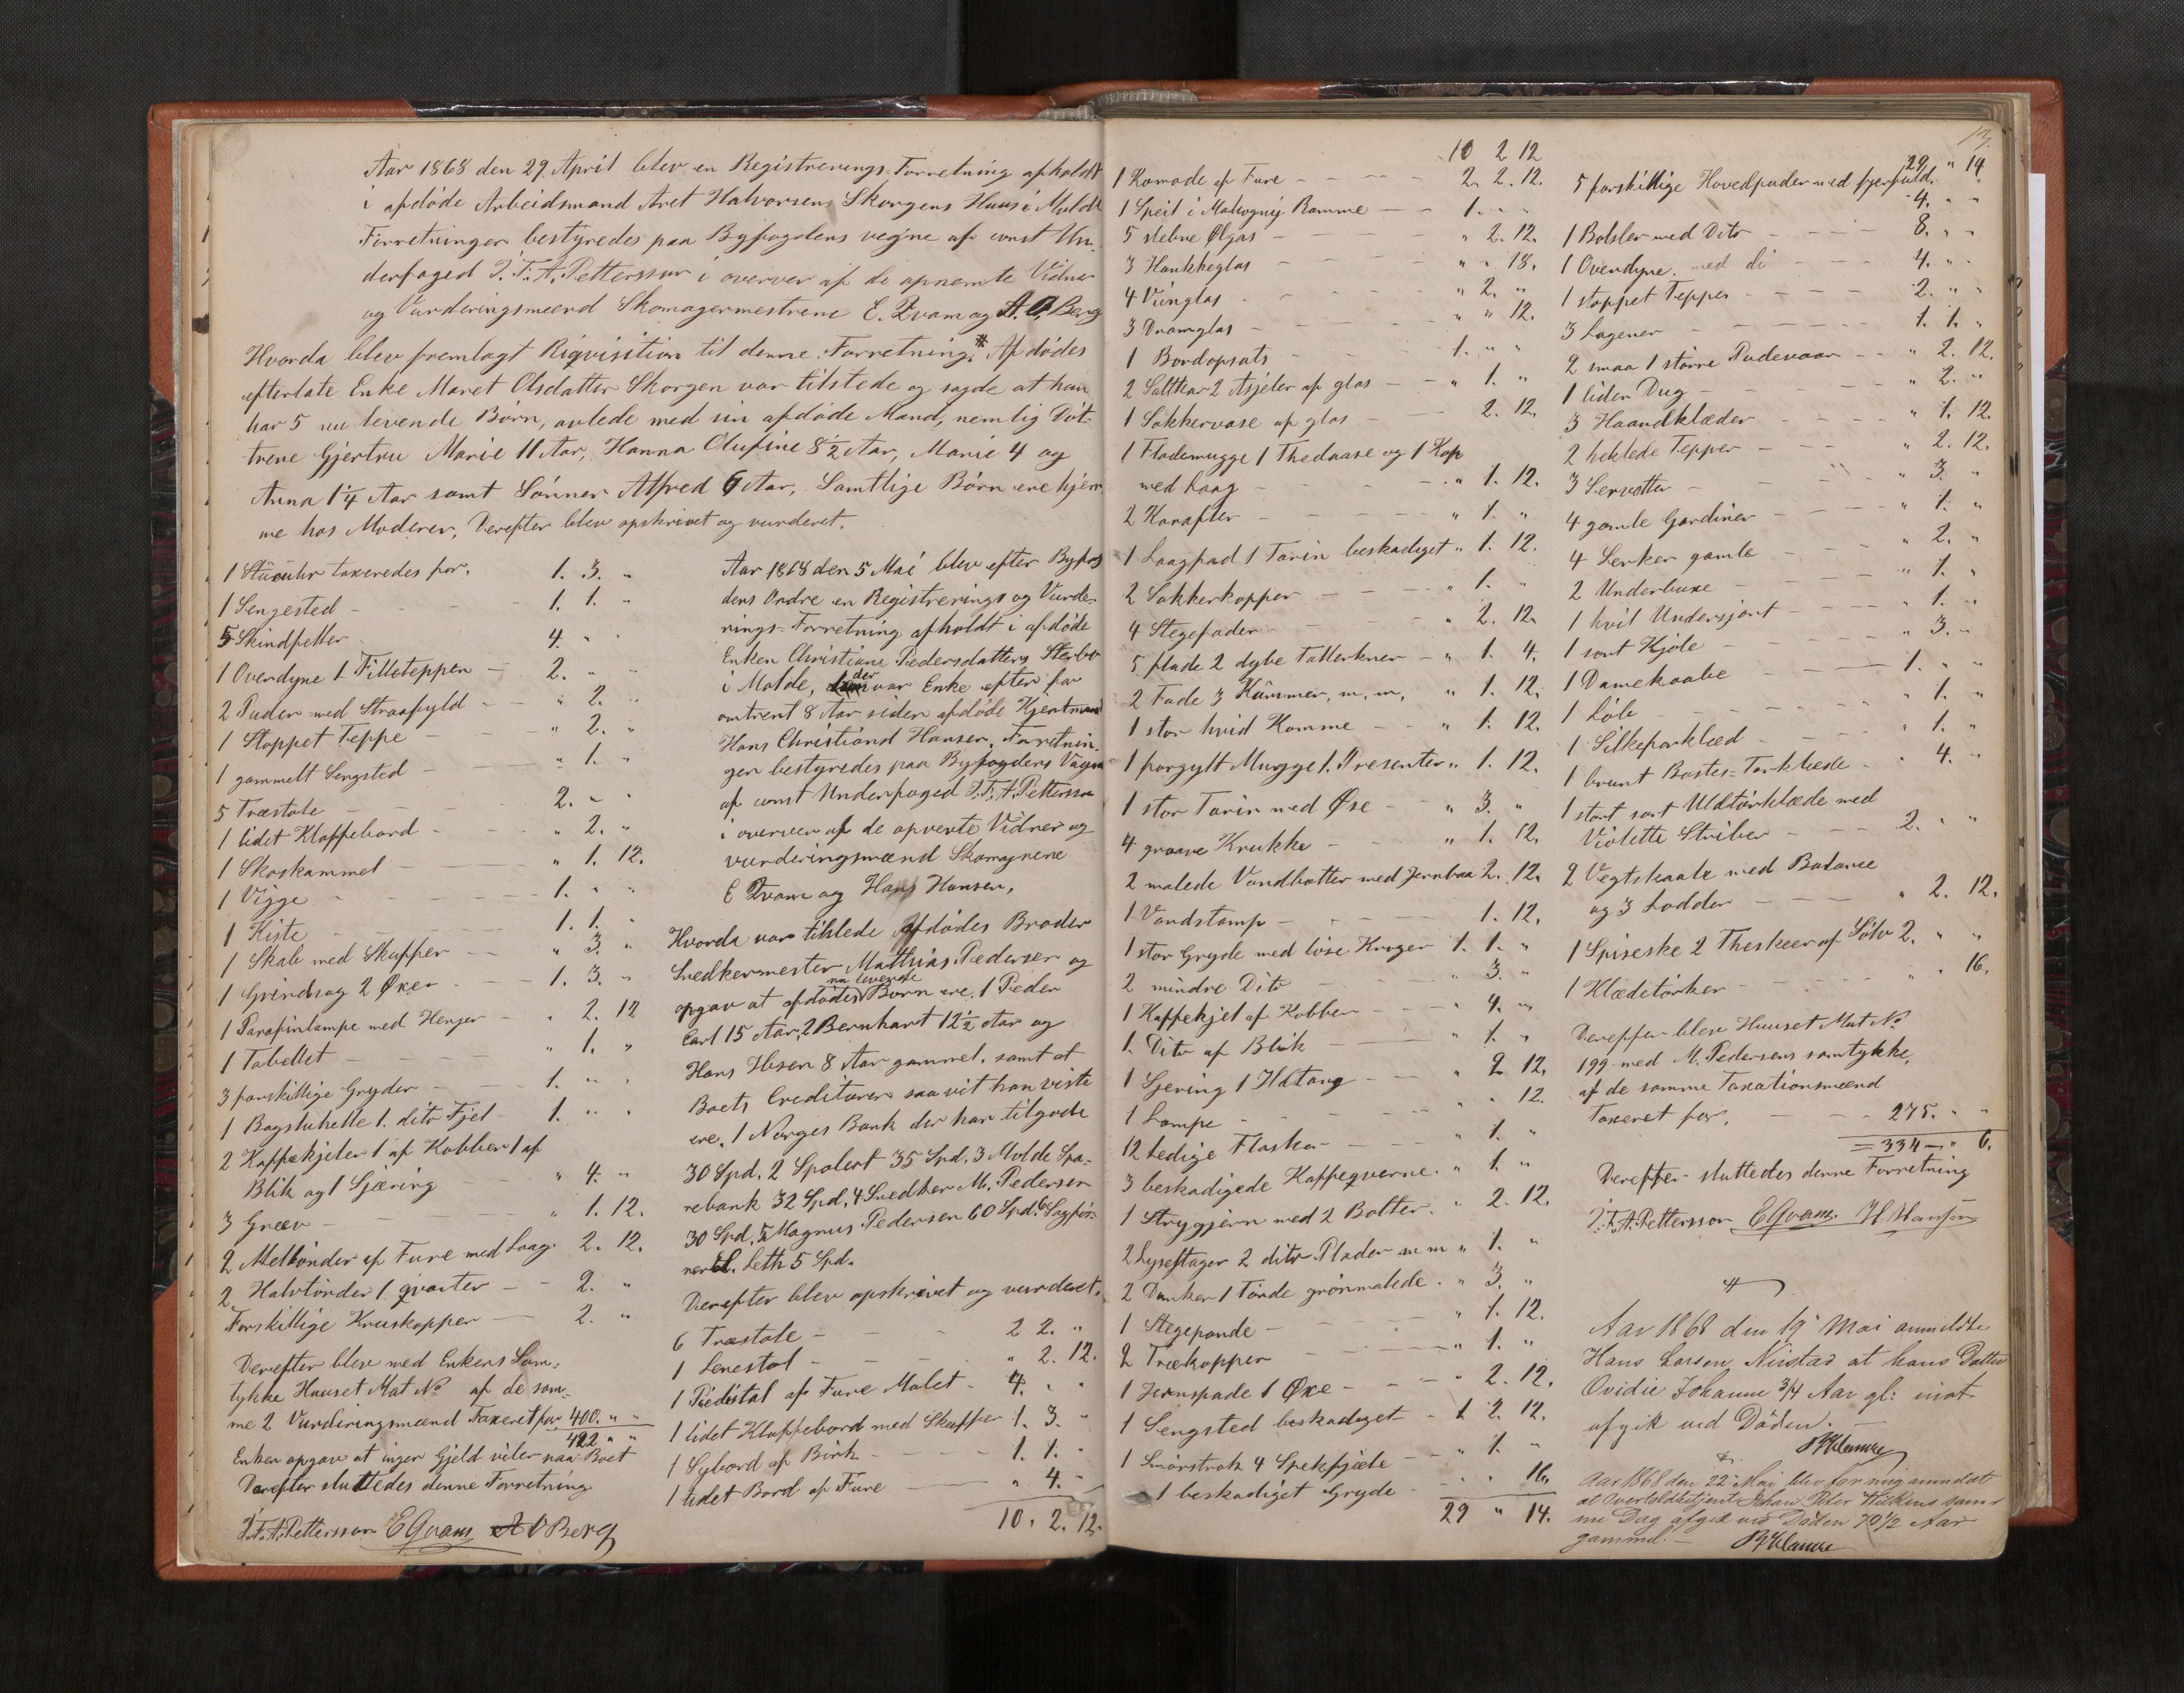 Aar 1868 den 29. April blev en Registrerings-Forretning afholdt
i afdöde Arbeidsmand Aret Halvorsen Skorgens Huus i Molde
Forretningen bestyredes paa Byfogdens vegne af const Un-
derfoged J. F. A. Pettersson i overver af de opnemte Vidner
og Vurderingsmænd Skomagermestrene E. Qvam og A. O. Berg
Hvorda blev fremlagt Riqvisition til denne Forretning. Afdödes
efterlate Enke Maret Olsdatter Skorgen var tilstede og sagde at hun
har 5 nu levende Börn, avlede med sin afdöde Mand, nemlig Döt-
trene Gjertru Marie 11 Aar, Hanna Olufine 8 1/2 Aar, Marie 4 og
Anna 1 1/4 Aar samt Sönnen Alfred 6 Aar, Samtlige Börn ere hjem-
me hos Moderen, Derefter blev opskrivet og vurderet.
1 Stueuhr taxeredes for. 1. 3. "
1 Sengested - 1. 1. "
5 Skindfeller 4. " "
1 Overdyne 1 Filleteppen - 2. " "
2 Puder med Straafyld - " 2. "
1 Stoppet Teppe - " 2. "
1 gammelt Sengsted - " 1. "
5 Træstole 2. " "
1 lidet Klaffebord - " 2. "
1 Skoskammel - " 1. 12.
1 Vigge - 1. " "
1 Kiste - 1. 1. "
1 Skab med Skuffer - " 3. "
1 Grindsag 2 Öxer - 1. 3. "
1 Parafinlampe med Henger - " 2. 12
1 Tabellet - " 1. "
3 forskillige Gryder - 1. " "
1 Bagstuhelle 1. dito Fjel - 1. " "
2 Kaffekjeler 1 af Kobber 1 af
Blik og 1 Sjæring " 4. "
3 Græv - " 1. 12.
2 Meltönder af Fure med Laag. 2. 12.
2 Halvtönder 1. qvarter - 2. "
Forskillige Kruskopper - 2. "
Derefter blev med Enkens Sam-
tykke Huuset Mat No af de sam-
me 2 Vurderingsmænd Taxeret for 400. " "
422 " "
Enken opgav at ingen Gjeld viler paa Boet
Derefter sluttedes denne Forretning
J. F. A. Pettersson E Qvam A O Berg
Aar 1868 den 5 Mai blev efter Byfog
dens Ordre en Registrerings og Vurde-
rings-Forretning afholdt i afdöde
Enken Christiane Pedersdatters Sterbo
i Molde, der var Enke efter for
omtrent 8 Aar siden afdöde
Hans Christiand Hansen. Forretnin-
gen bestyredes paa Byfogdens Vegne
af const Underfoged J. F. A. Pettersson
i overver af de opnente Vidner og
vurderingsmænd Skomagrene
E Qvam og Hans Hansen,
Hvorda var tilstede Afdödes Broder
Snedkermester Matthias Pedersen og
opgav at afdödes nu levende Börn ere. 1 Peder
Carl 15 Aar, 2 Bernhart 12 1/2 Aar og
Hans Ilisen 8 Aar gammel. samt at
Boets Creditörer saavit han viste
ere. 1 Norges Bank der har tilgode
30 Spd. 2 35 Spd. 3 Molde Spa-
rebank 32 Spd. 4 Snedker M. Pedersen
30 Spd. 5 Magnus Pedersen 60 Spd. 6 Sagför-
rer Leth 5 Spd.
Derefter blev opskrivet og vurderet.
6 Træstole - 2 2. "
1 Lenestol - " 2. 12.
1 Piedestal af Fure Malet - 4. " "
1 lidet Klaffebord med Skuffer 1. 3. "
1 Sybord af Birk - 1. 1. "
1 lidet Bord af Fure - " 4. "
10. 2. 12.
10 2 12
1 Komode af Fure - 2. 2. 12.
1 Speil i Mahogny Ramme - 1. " "
5 slebne Ölgas - " 2. 12.
3 Hankkeglas - " " 18.
4 Viinglas - " 2. "
3 Dramglas - " " 12.
1 Bordopsats - 1. " "
2 Saltkar 2 Asjeler af glas - " 1. "
1 Sokkervase af glas - 2. 12.
1 Flödemugge 1 Thedaase og 1 Kop
med Laag - " 1. 12.
2 Karafler - " 1. "
1 Laagfad 1 Tarin beskadiget " 1. 12.
2 Sokkerkopper - " 1. "
4 Stegefader - " 2. 12.
5 flade 2 dybe Tallerkner - " 1. 4.
2 Fade 3 Kummer, m, m, " 1. 12.
1 stor hvid Komme - " 1. 12.
1 forgylt Mugge 1. Presenter " 1. 12.
1 stor Tarin med Öse - " 3. "
4 graave Krukke - " 1. 12.
2 malede Vandbötter med Jernbaa 2. 12.
1 Vandstamp - 1. 12.
1 stor Gryde med löse Kroger 1. 1. "
2 mindre Dito - " 3. "
1 Kaffekjel af Kobber - " 4. "
1. Dito af Blik - " 1. "
1 Sjering 1 Ildtang - " 2 12.
1 Lampe - " " 12.
12 Ledige Flasker - " 1. "
3 beskadigede Kaffeqverne. " 1. "
1 Strygjern med 2 Bolter. " 2. 12.
2 Lysestager 2 dito Plader m m " 1. "
2 Dunker 1 Tönde grönmalede. " 3. "
1 Stegepande - " 1. 12.
2 Trækopper - " 1. "
1 Jernspade 1 Öxe - " 2. 12.
1 Sengsted beskadiget - 1 2. 12.
1 Smörstrok 4 Spekfjæle - " 1. "
1 beskadiget Gryde - " " 16.
29 " 14.
13.
29 " 14
5 forskillige Hovedpuder med fjerfyld. 4. " "
1 Bolster med Dito - 8. " "
1 Overdyne. med di - 4. " "
1 stoppet Teppe - 2. " "
3 Lagener - 1. 1. "
2 smaa 1 större Pudevaar - " 2. 12.
1 liden Dug - " 2. "
3 Haandklæder - " 1. 12.
2 heklede Tepper - " 2. 12.
3 Servetter - " 3. "
4 gamle Gardiner - " 1. "
4 Serker gamle - " 2. "
2 Underbuxe - " 1. "
1 hvit Undersjört - " 1. "
1 sort Kjole - " 3. "
1 Damekaabe - 1. " "
1 - " 1. "
1 Silkeforklæd - " 1. "
1 brunt Bastes-Törklæde - " 4. "
1 stort sort Uldtörklæde med
Violette Striber - 2. " "
2 Vegtskaale med Balance
og 3 Lodder - " 2. 12.
1 Spiseske 2 Theskeer af Sölv 2. " "
1 Klædetörker - " " 16.
Derefter blev Huuset Mat No
199 med M. Pedersens samtykke,
af de samme Taxationsmænd
Taxeret for, - 275. " "
= 334 - " 6.
Derefter sluttedes denne Forretning
J. F. A. Pettersson E Qvam. H. Hansen
Aar 1868 den 19 Mai anmeldte
Hans Larsen Nirstad at hans Datter
Ovidie Johanne 3/4 Aar gl: inat
afgik ved Döden. -
Aar 1868 den 22 Mai blev for mig anmeldt
at Overtoldbetjent Johan Peter Wilkens sam-
me Dag afgik ved Döden 70 1/2 Aar
gammel. -